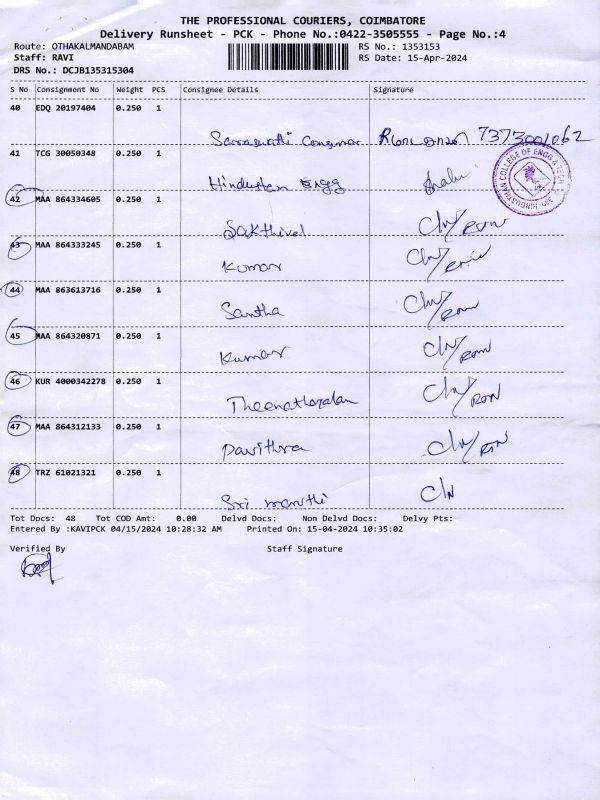 THE PROFESSIONAL COURIERS, COIMBATORE
Delivery Runsheet - PCK - Phone No.:0422-3505555 - Page No.:4
Route: OTHAKALMANDABAM RS No.: 1353153
Staff: RAVI RS Date: 15-Apr-2024
DRS No.: DCJB135315304
S No Consignment No Weight PCS Consignee Details Signature
40 EDQ 20197404 0.250 1
7373001062
41 TCG 30050348 0.250 1
Hindustan Engg
42 MAA 864334605 0.250 1
Sakthivel
43 MAA 864333245 0.250 1
Kumar
44 MAA 863613716 0.250 1
Santha
45 MAA 864320871 0.250 1
Kumar
46 KUR 4000342278 0.250 1
47 MAA 864312133 0.250 1
Pavithra
48 TRZ 61021321 0.250 1
Sri maruthi
Tot Docs: 48 Tot COD Amt: 0.00 Delvd Docs: Non Delvd Docs: Delvy Pts:
Entered By :KAVIPCK 04/15/2024 10:28:32 AM Printed On: 15-04-2024 10:35:02
Verified By Staff Signature